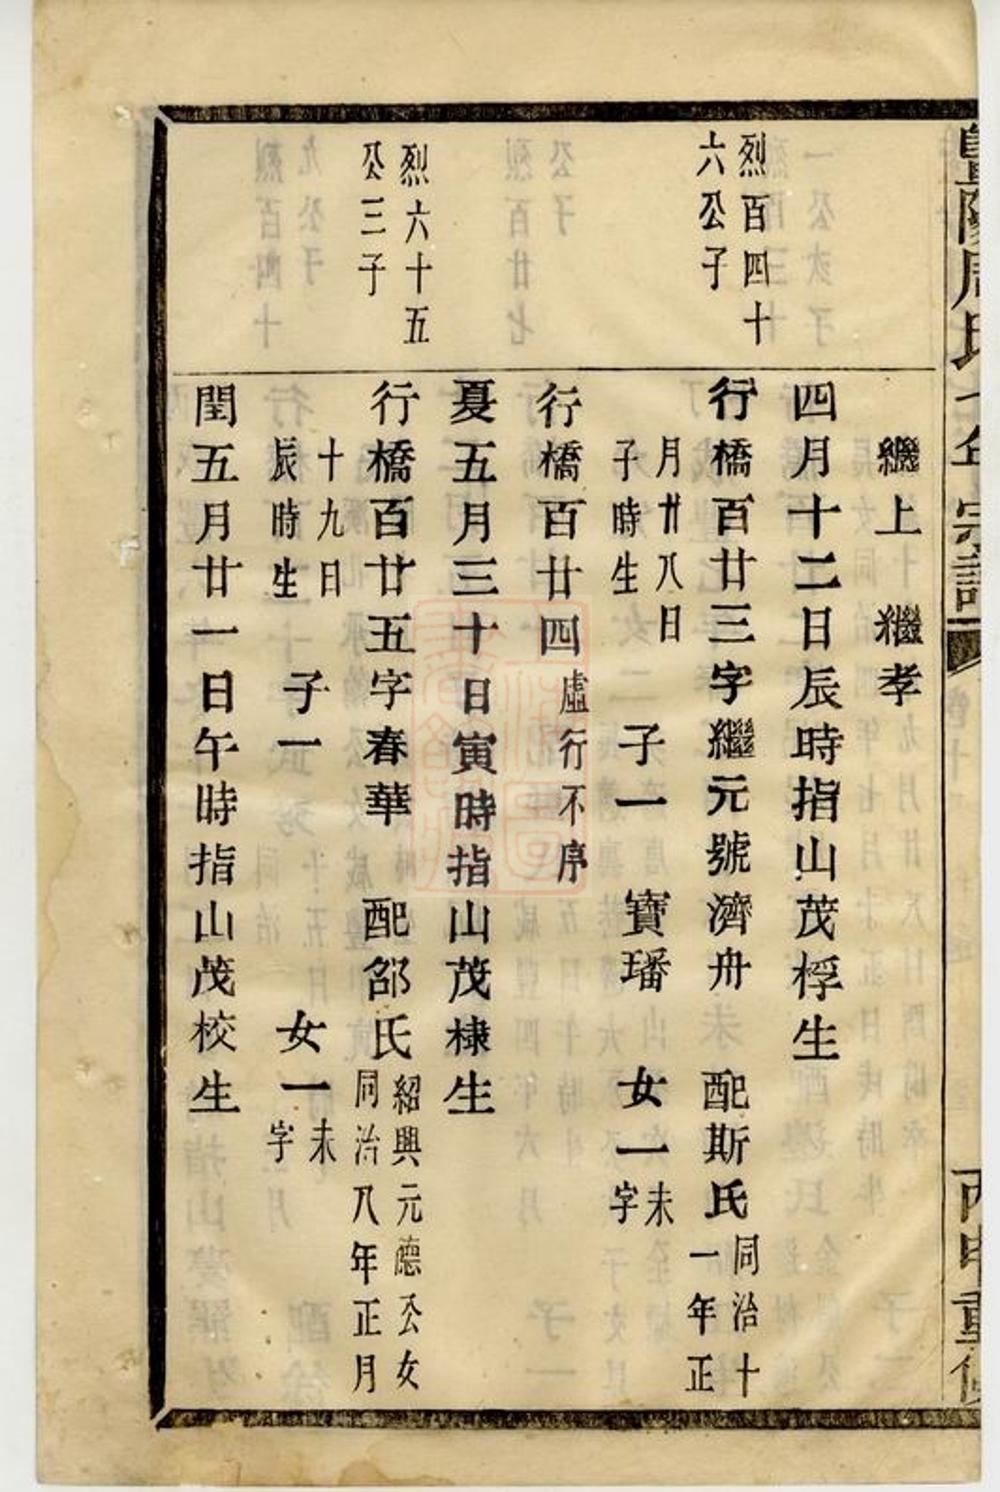 暨陽周氏
宗譜
丙申重修
繼上 繼孝
四月十二日辰時指山茂桴生
烈百四十
六公子
行橋百廿三字繼元號濟舟 配斯氏
同治十
一年正
月廿八日
子時生
子一 寶璠 女一
未
字
行橋百廿四
虛行不序
夏五月三十日寅時指山茂棣生
烈六十五
公三子
行橋百廿五字春華 配邵氏
紹興元德公女
同治八年正月
十九日
辰時生
子一 女一
未
字
閏五月廿一日午時指山茂校生